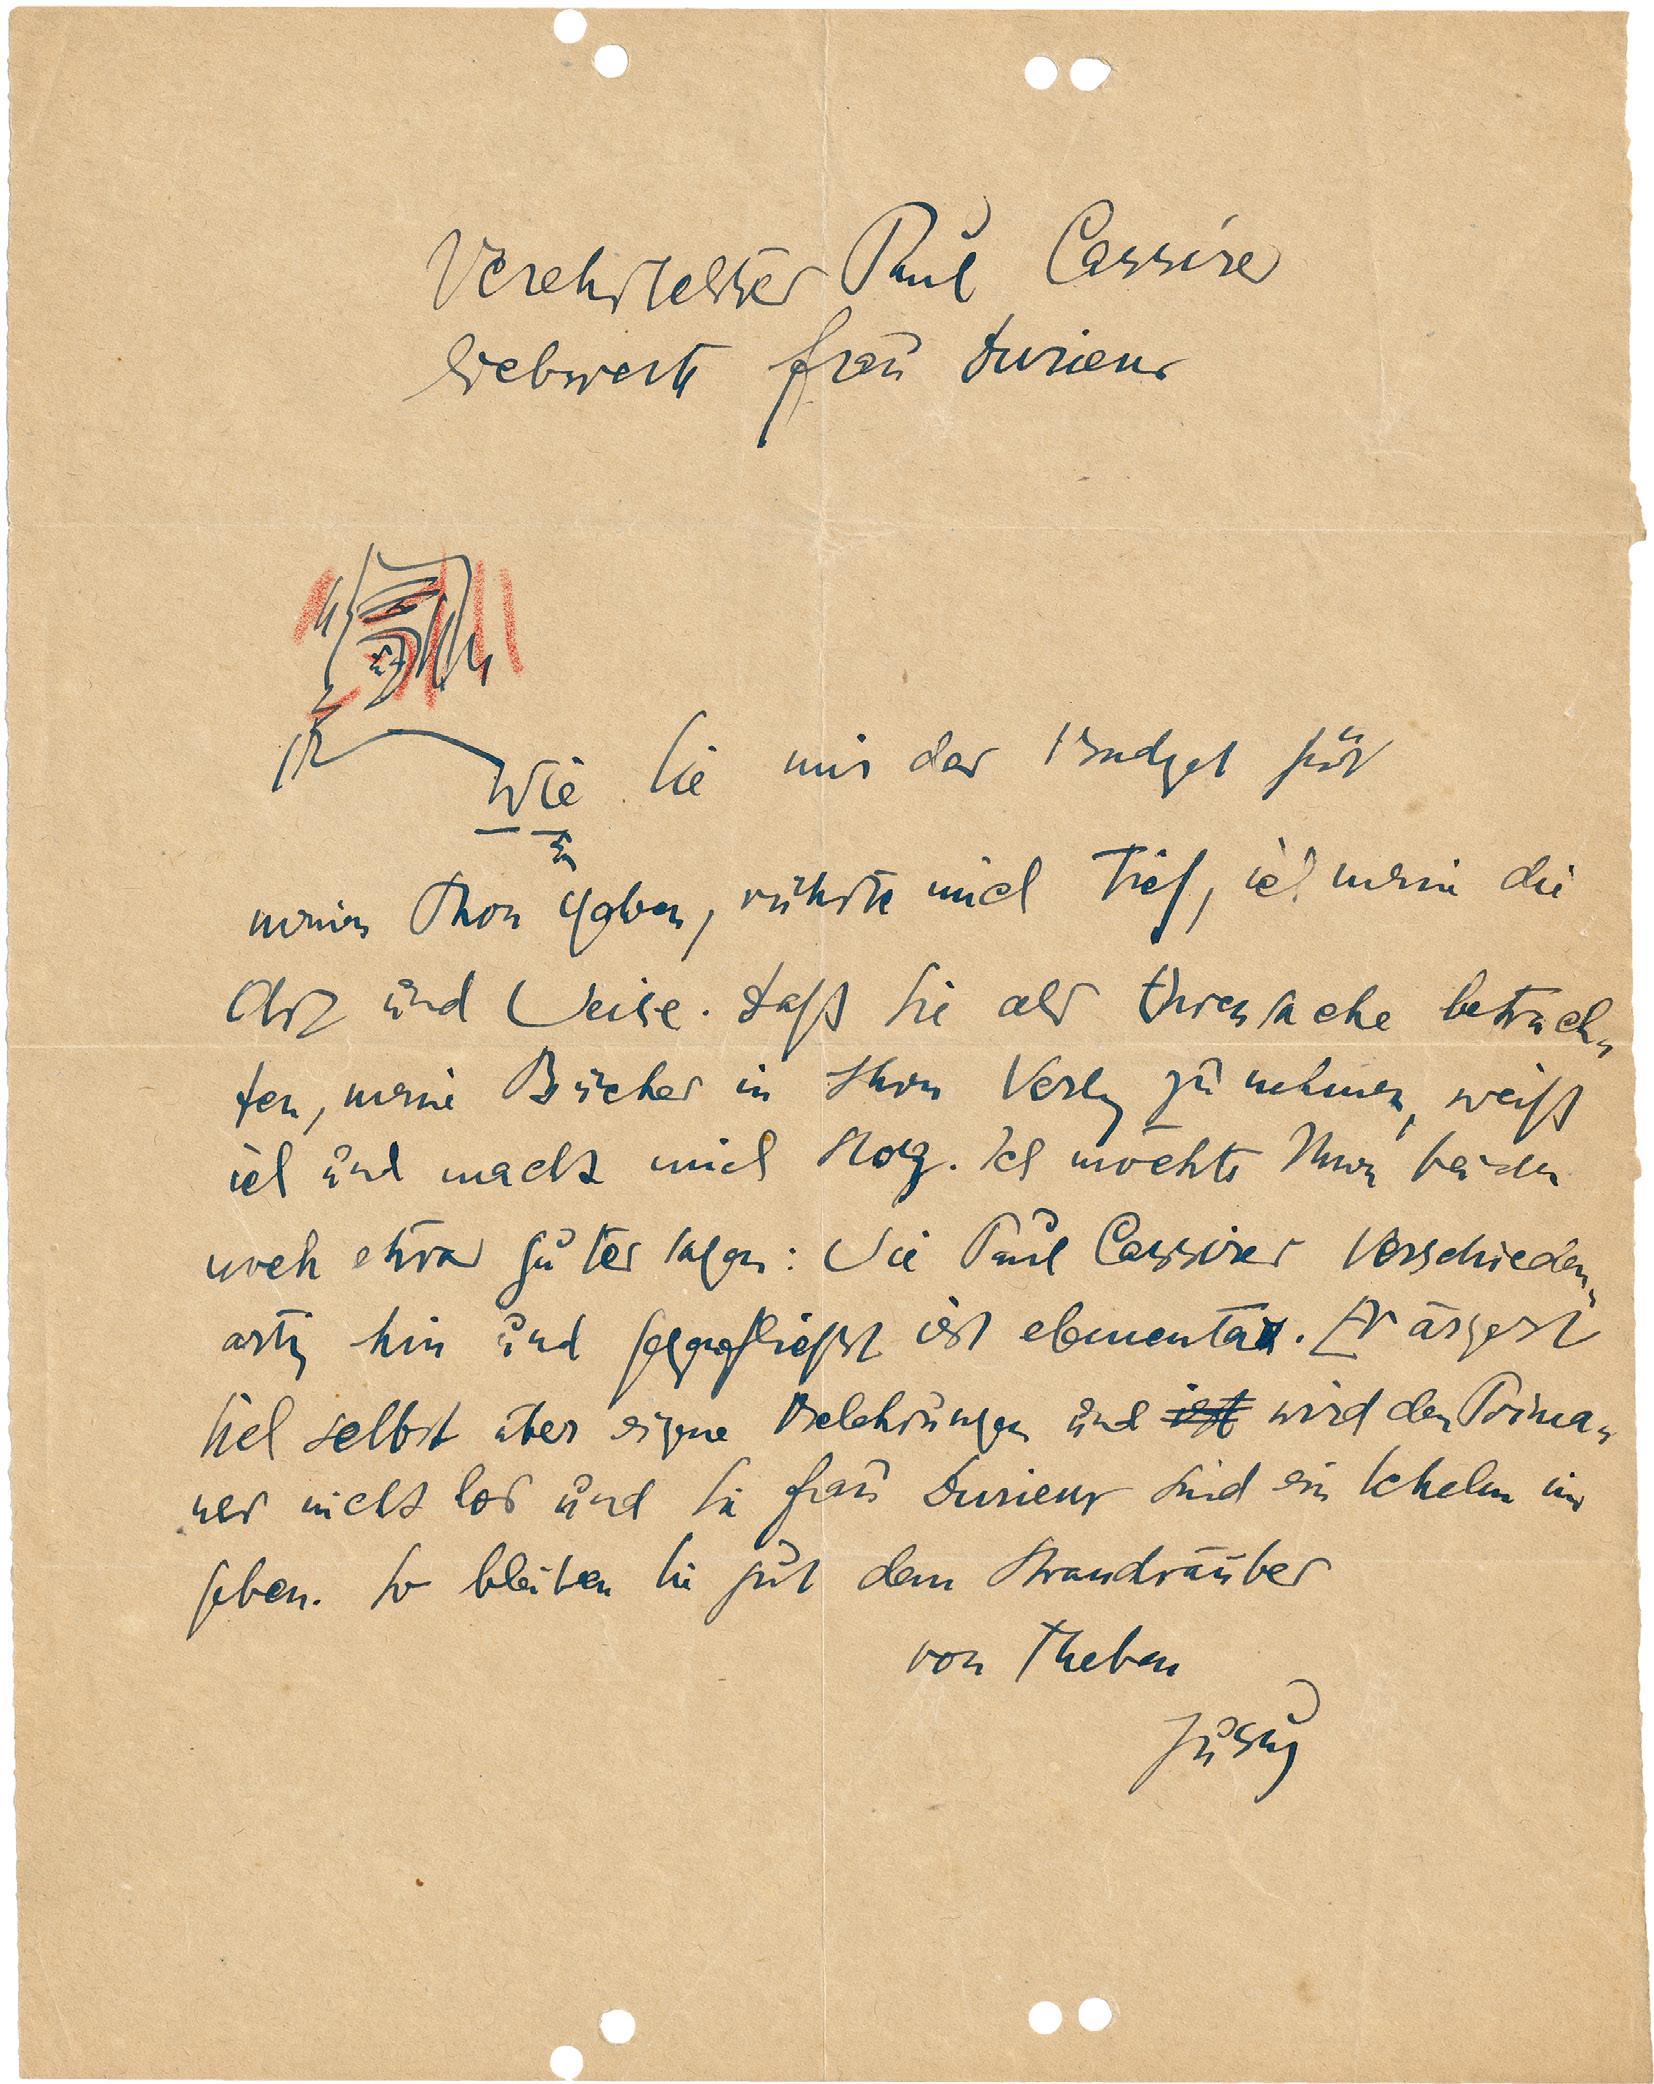 Verehrtester Paul Cassirer
liebwerte Frau Durieux
Wie Sie mir das Budget für
meinen Thron gaben, rührte mich tief, ich meine die
Art und Weise. Daß Sie als Ehrensache betrach-
ten, meine Bücher in Ihren Verlag zu nehmen, weiß
ich und macht mich stolz. Ich möchte Ihnen beiden
noch etwas guter sagen: Wie Paul Cassirer Verschieden-
artig hin und ist elementar. Er ärgert
sich selbst über eigene Belehrungen und ist wird den Prima-
ner nicht los und Sie Frau Durieux sind ein Schelm im
Leben. So bleiben Sie gut dem Strandräuber
von Theben
Jussuf